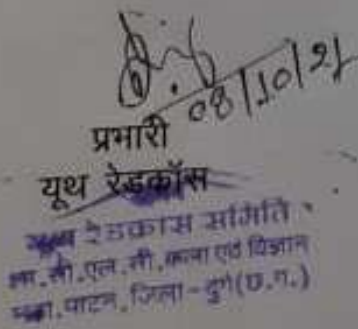 08/10/21
प्रभारी
यूथ रेडक्रॉस
रेडक्रास समिति
सी.एल.सी. कला एवं विज्ञान
पाटन, जिला-दुर्ग (छ.ग.)